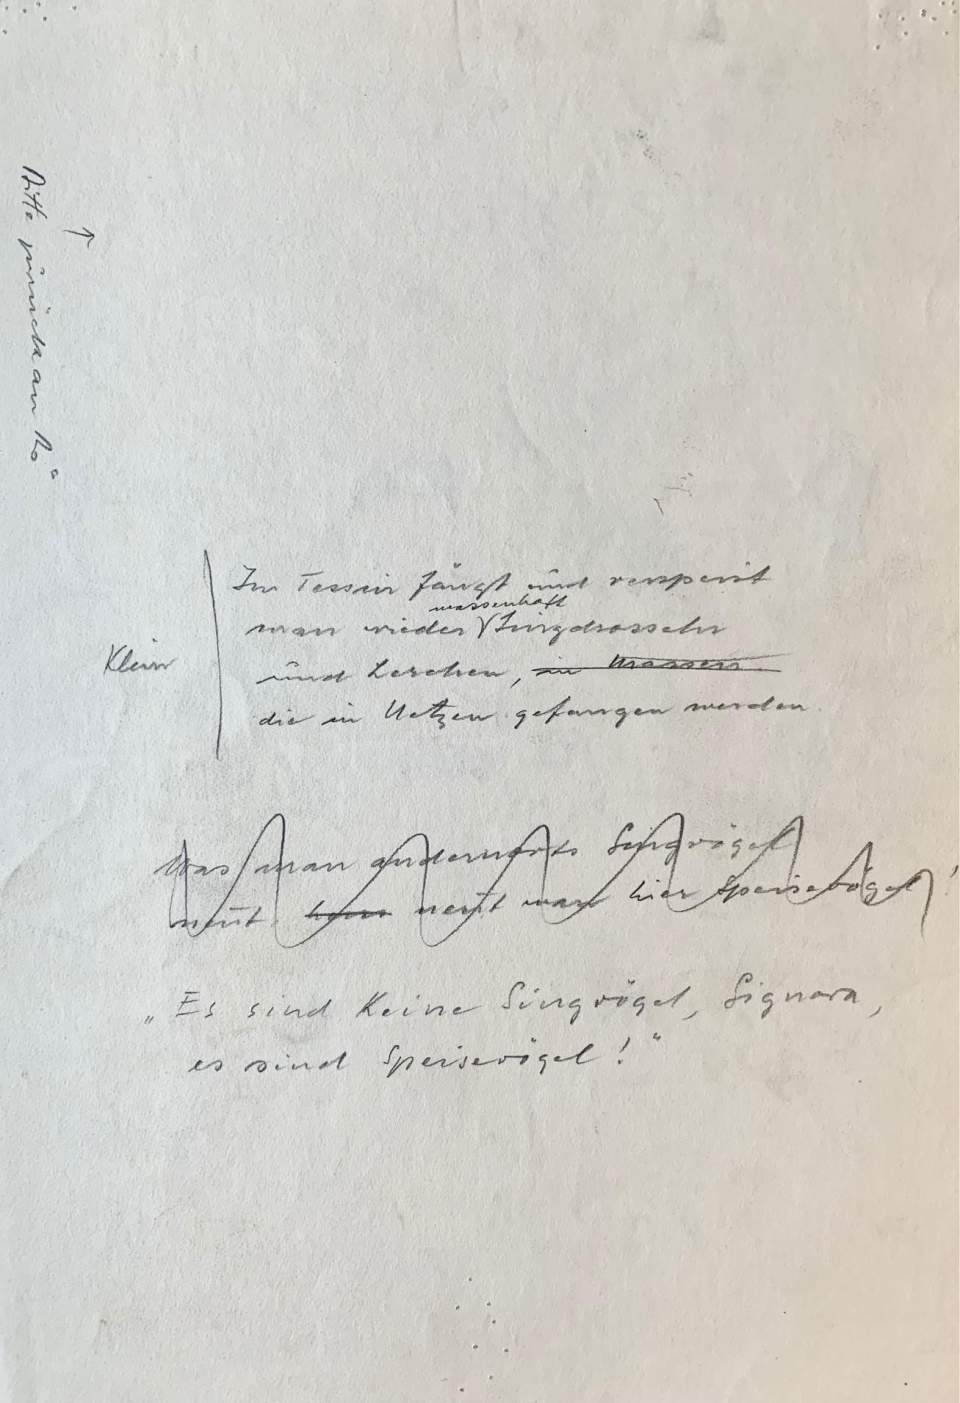 Bitte zurück an Bo"
Im Tessin fängt und verspeist
massenhaft
man wieder Singdrosseln
Klein
und Lerchen, in Massen
die in Netzen gefangen werden.
Was man andernorts Singvögel
nent hier nent man hier Speisevögel!
„Es sind Keine Singvögel, Signora,
es sind Speisevögel!"